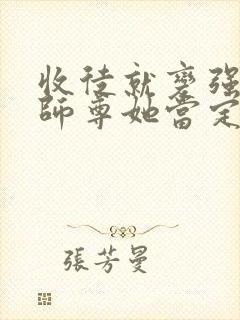 收徒就變强
師尊她當定
張芳曼